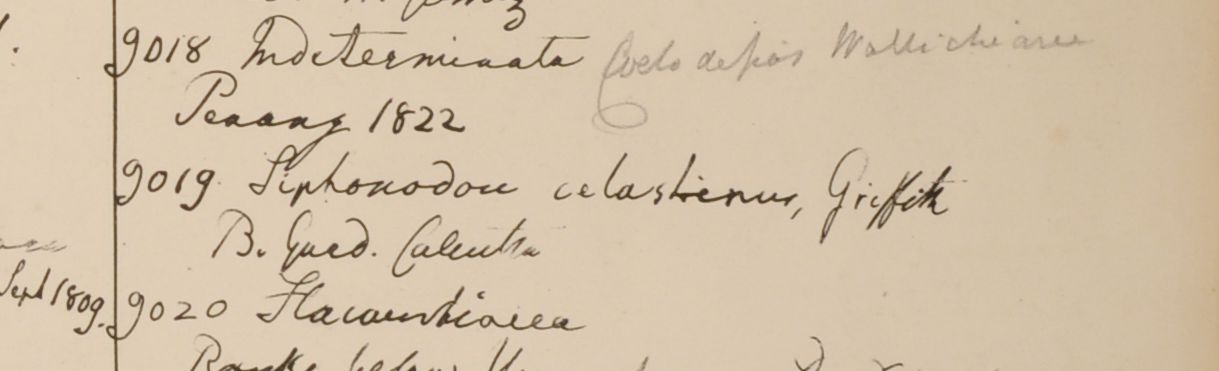 9018 Indeterminata Coelodepas Wallichianum
Penang 1822
9019 Siphonodon celastrinus, Griffith
B. Gard. Calcutta
Sept 1809.
9020 Flacourtiacea